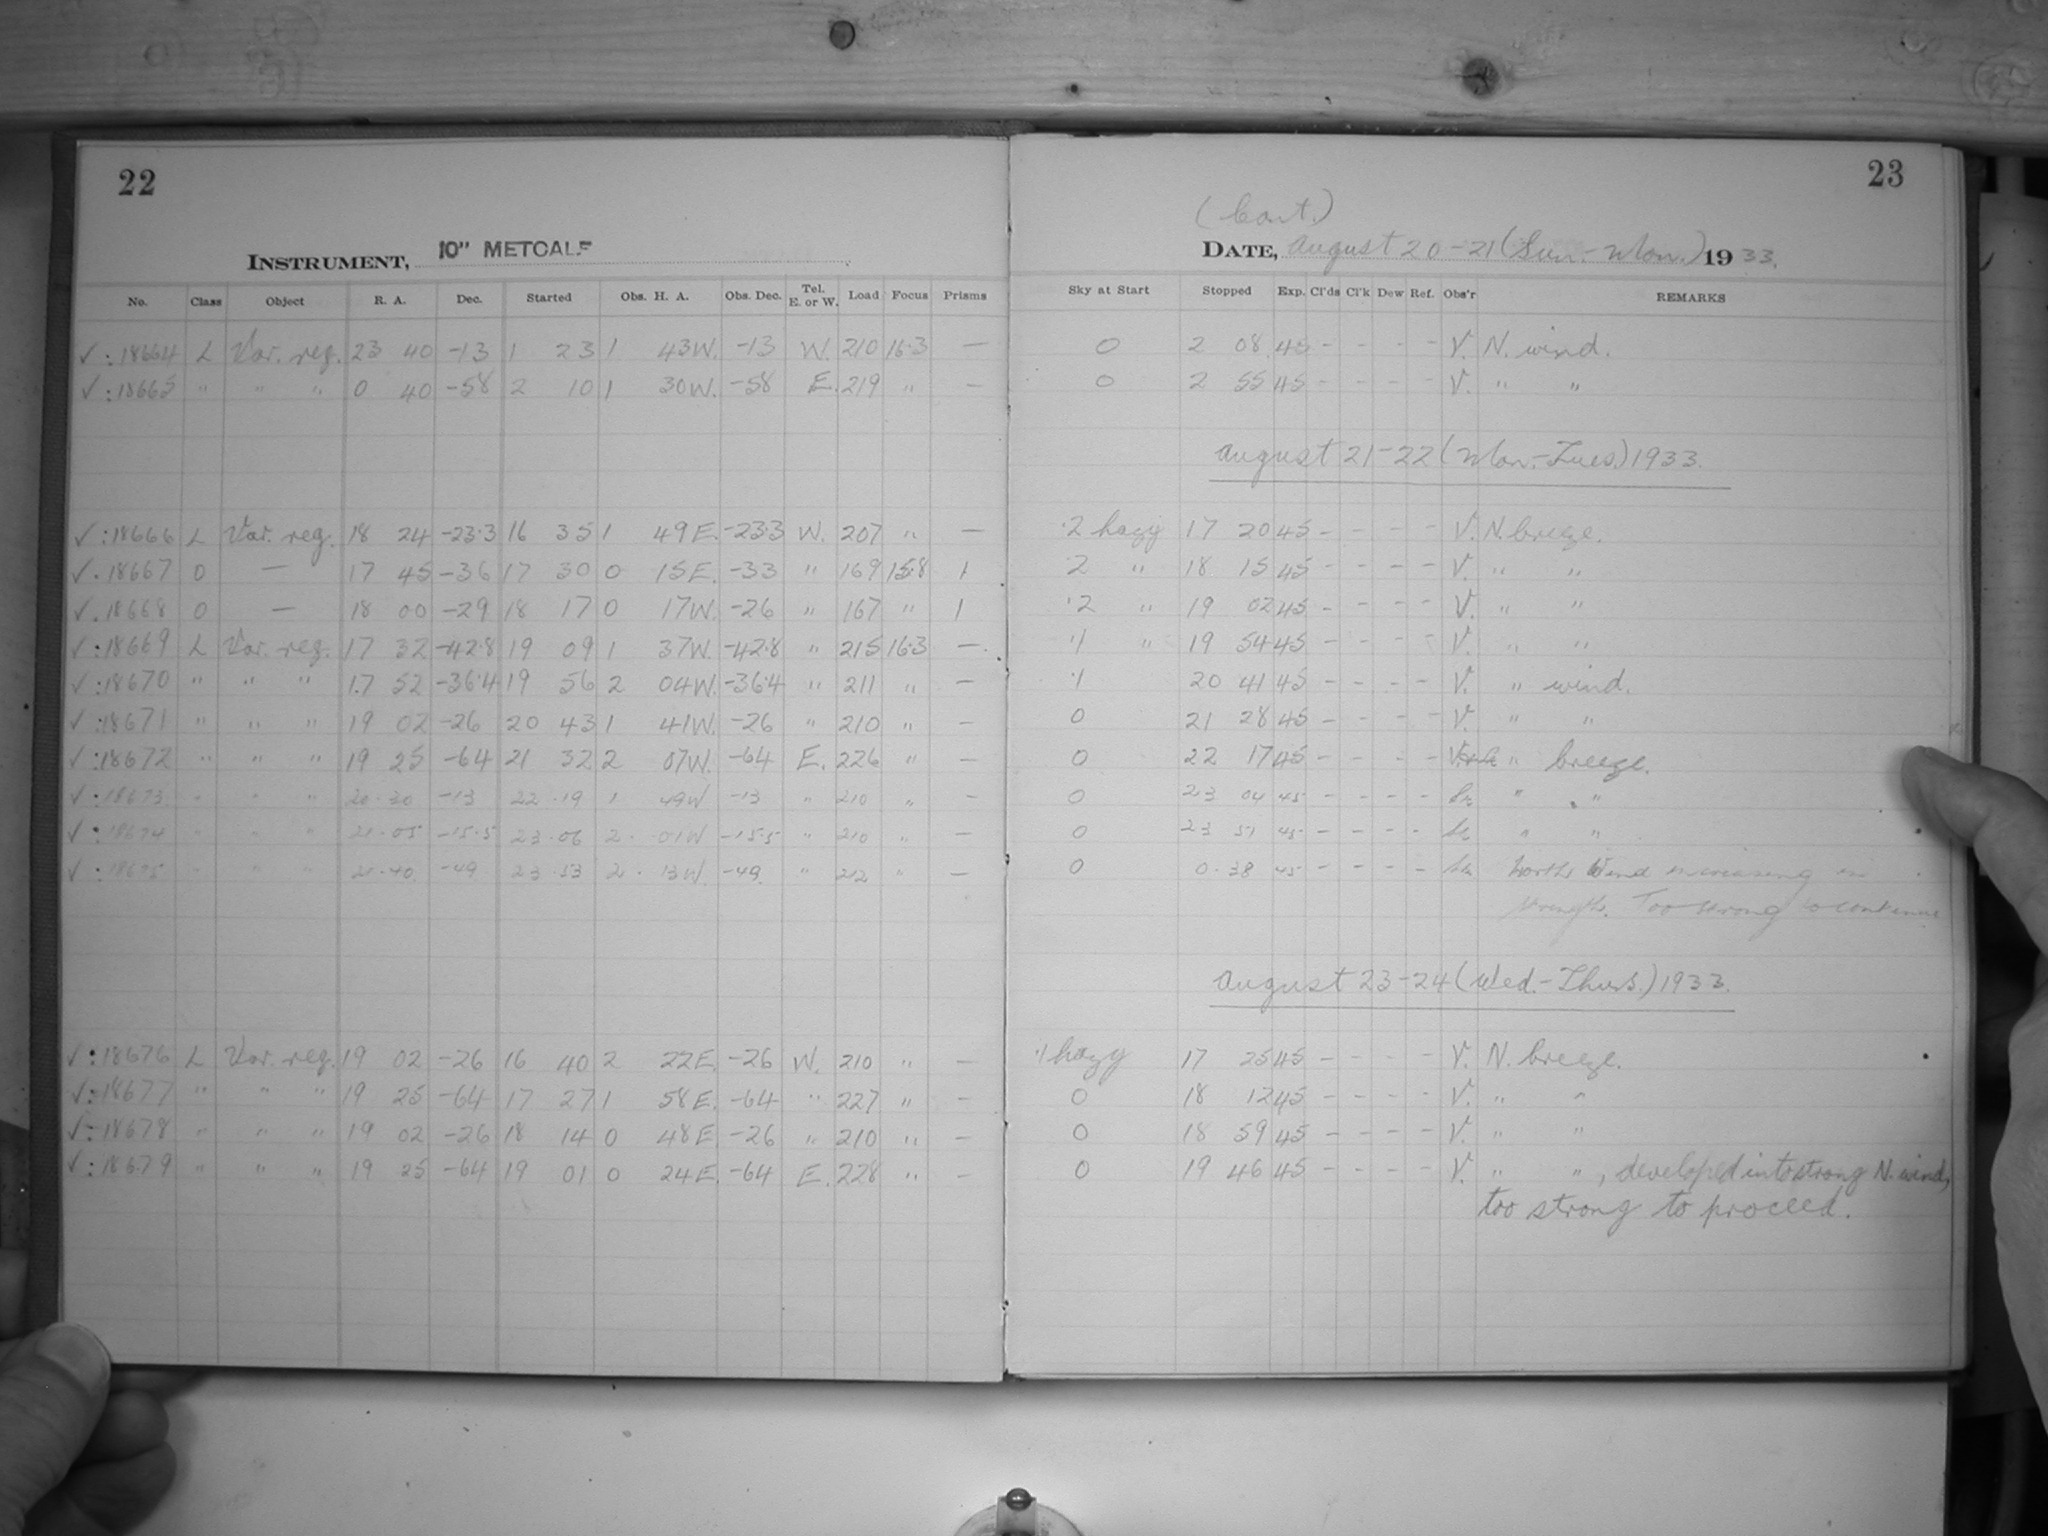 22
INSTRUMENT, 10" METCALF
No. Class Object R. A. Dec. Started Obs. H. A. Obs. Dec. Tel. E. or W. Load Focus Prisms
✓ : 18664 L Var. reg. 23 40 -13 1 23 1 43W. -13 W. 210 16.3 —
✓ : 18665 " " " 0 40 -58 2 10 1 30W. -58 E. 219 " —
✓ : 18666 L Var. reg. 18 24 -23.3 16 35 1 49E. -23.3 W. 207 " —
✓ . 18667 O — 17 45 -36 17 30 0 15E. -33 " 169 15.8 1
✓ . 18668 O — 18 00 -29 18 17 0 17W. -26 " 167 " 1
✓ : 18669 L Var. reg. 17 32 -42.8 19 09 1 37W. -42.8 " 215 16.3 —
✓ : 18670 " " " 17 52 -36.4 19 56 2 04W. -36.4 " 211 " —
✓ : 18671 " " " 19 02 -26 20 43 1 41W. -26 " 210 " —
✓ : 18672 " " " 19 25 -64 21 32 2 07W. -64 E. 226 " —
✓ : 18673 " " " 20.30 -13 22.19 1 49W -13 " 210 " —
✓ : 18674 " " " 21.05 -15.5 23.06 2. 01W -15.5 " 210 " —
✓ : 18675 " " " 21.40 -49 23.53 2. 13W. -49. " 212 " —
✓ : 18676 L Var. reg. 19 02 -26 16 40 2 22E. -26 W. 210 " —
✓ : 18677 " " " 19 25 -64 17 27 1 58E. -64 " 227 " —
✓ : 18678 " " " 19 02 -26 18 14 0 48E. -26 " 210 " —
✓ : 18679 " " " 19 25 -64 19 01 0 24E. -64 E. 228 " —
23
(Cont.)
DATE, August 20-21 (Sun.-Mon.) 1933.
Sky at Start Stopped Exp. Cl'ds Cl'k Dew Ref. Obs'r REMARKS
0 2 08 45 - - - - V. N. wind.
0 2 55 45 - - - - V. " "
August 21-22 (Mon.-Tues.) 1933.
.2 hazy 17 20 45 - - - - V. N. breeze.
.2 " 18 15 45 - - - - V. " "
.2 " 19 02 45 - - - - V. " "
.1 " 19 54 45 - - - - V. " "
.1 20 41 45 - - - - V. " wind.
0 21 28 45 - - - - V. " "
0 22 17 45 - - - - " breeze.
0 23 04 45 - - - - " "
0 23 51 45 - - - - " "
0 0.38 45 - - - - North Wind increasing in
strength. Too strong to continue
August 23-24 (Wed.-Thurs.) 1933.
.1 hazy 17 25 45 - - - - V. N. breeze.
0 18 12 45 - - - - V. " "
0 18 59 45 - - - - V. " "
0 19 46 45 - - - - V. " " , developed into strong N. wind,
too strong to proceed.